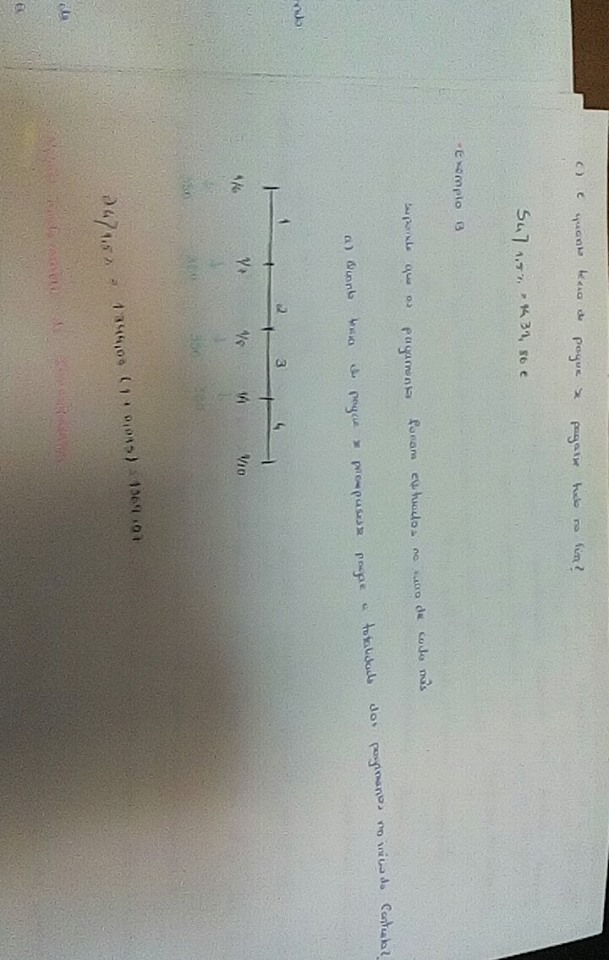 c) E quanto teria de pagar se pagasse tudo no fim?
S4┐1,5% = 1431,86 €
- Exemplo B
Supondo que os pagamentos foram efetuados no início de cada mês
a) Quanto teria de pagar se pagar a totalidade dos pagamentos no início do Contrato?
1 2 3 4
1/6 1/7 1/8 1/9 1/10
350 350 350 350
ä4┐1,5% = 1344,07 (1 + 0,015) = 1364,07
ndo
de
a